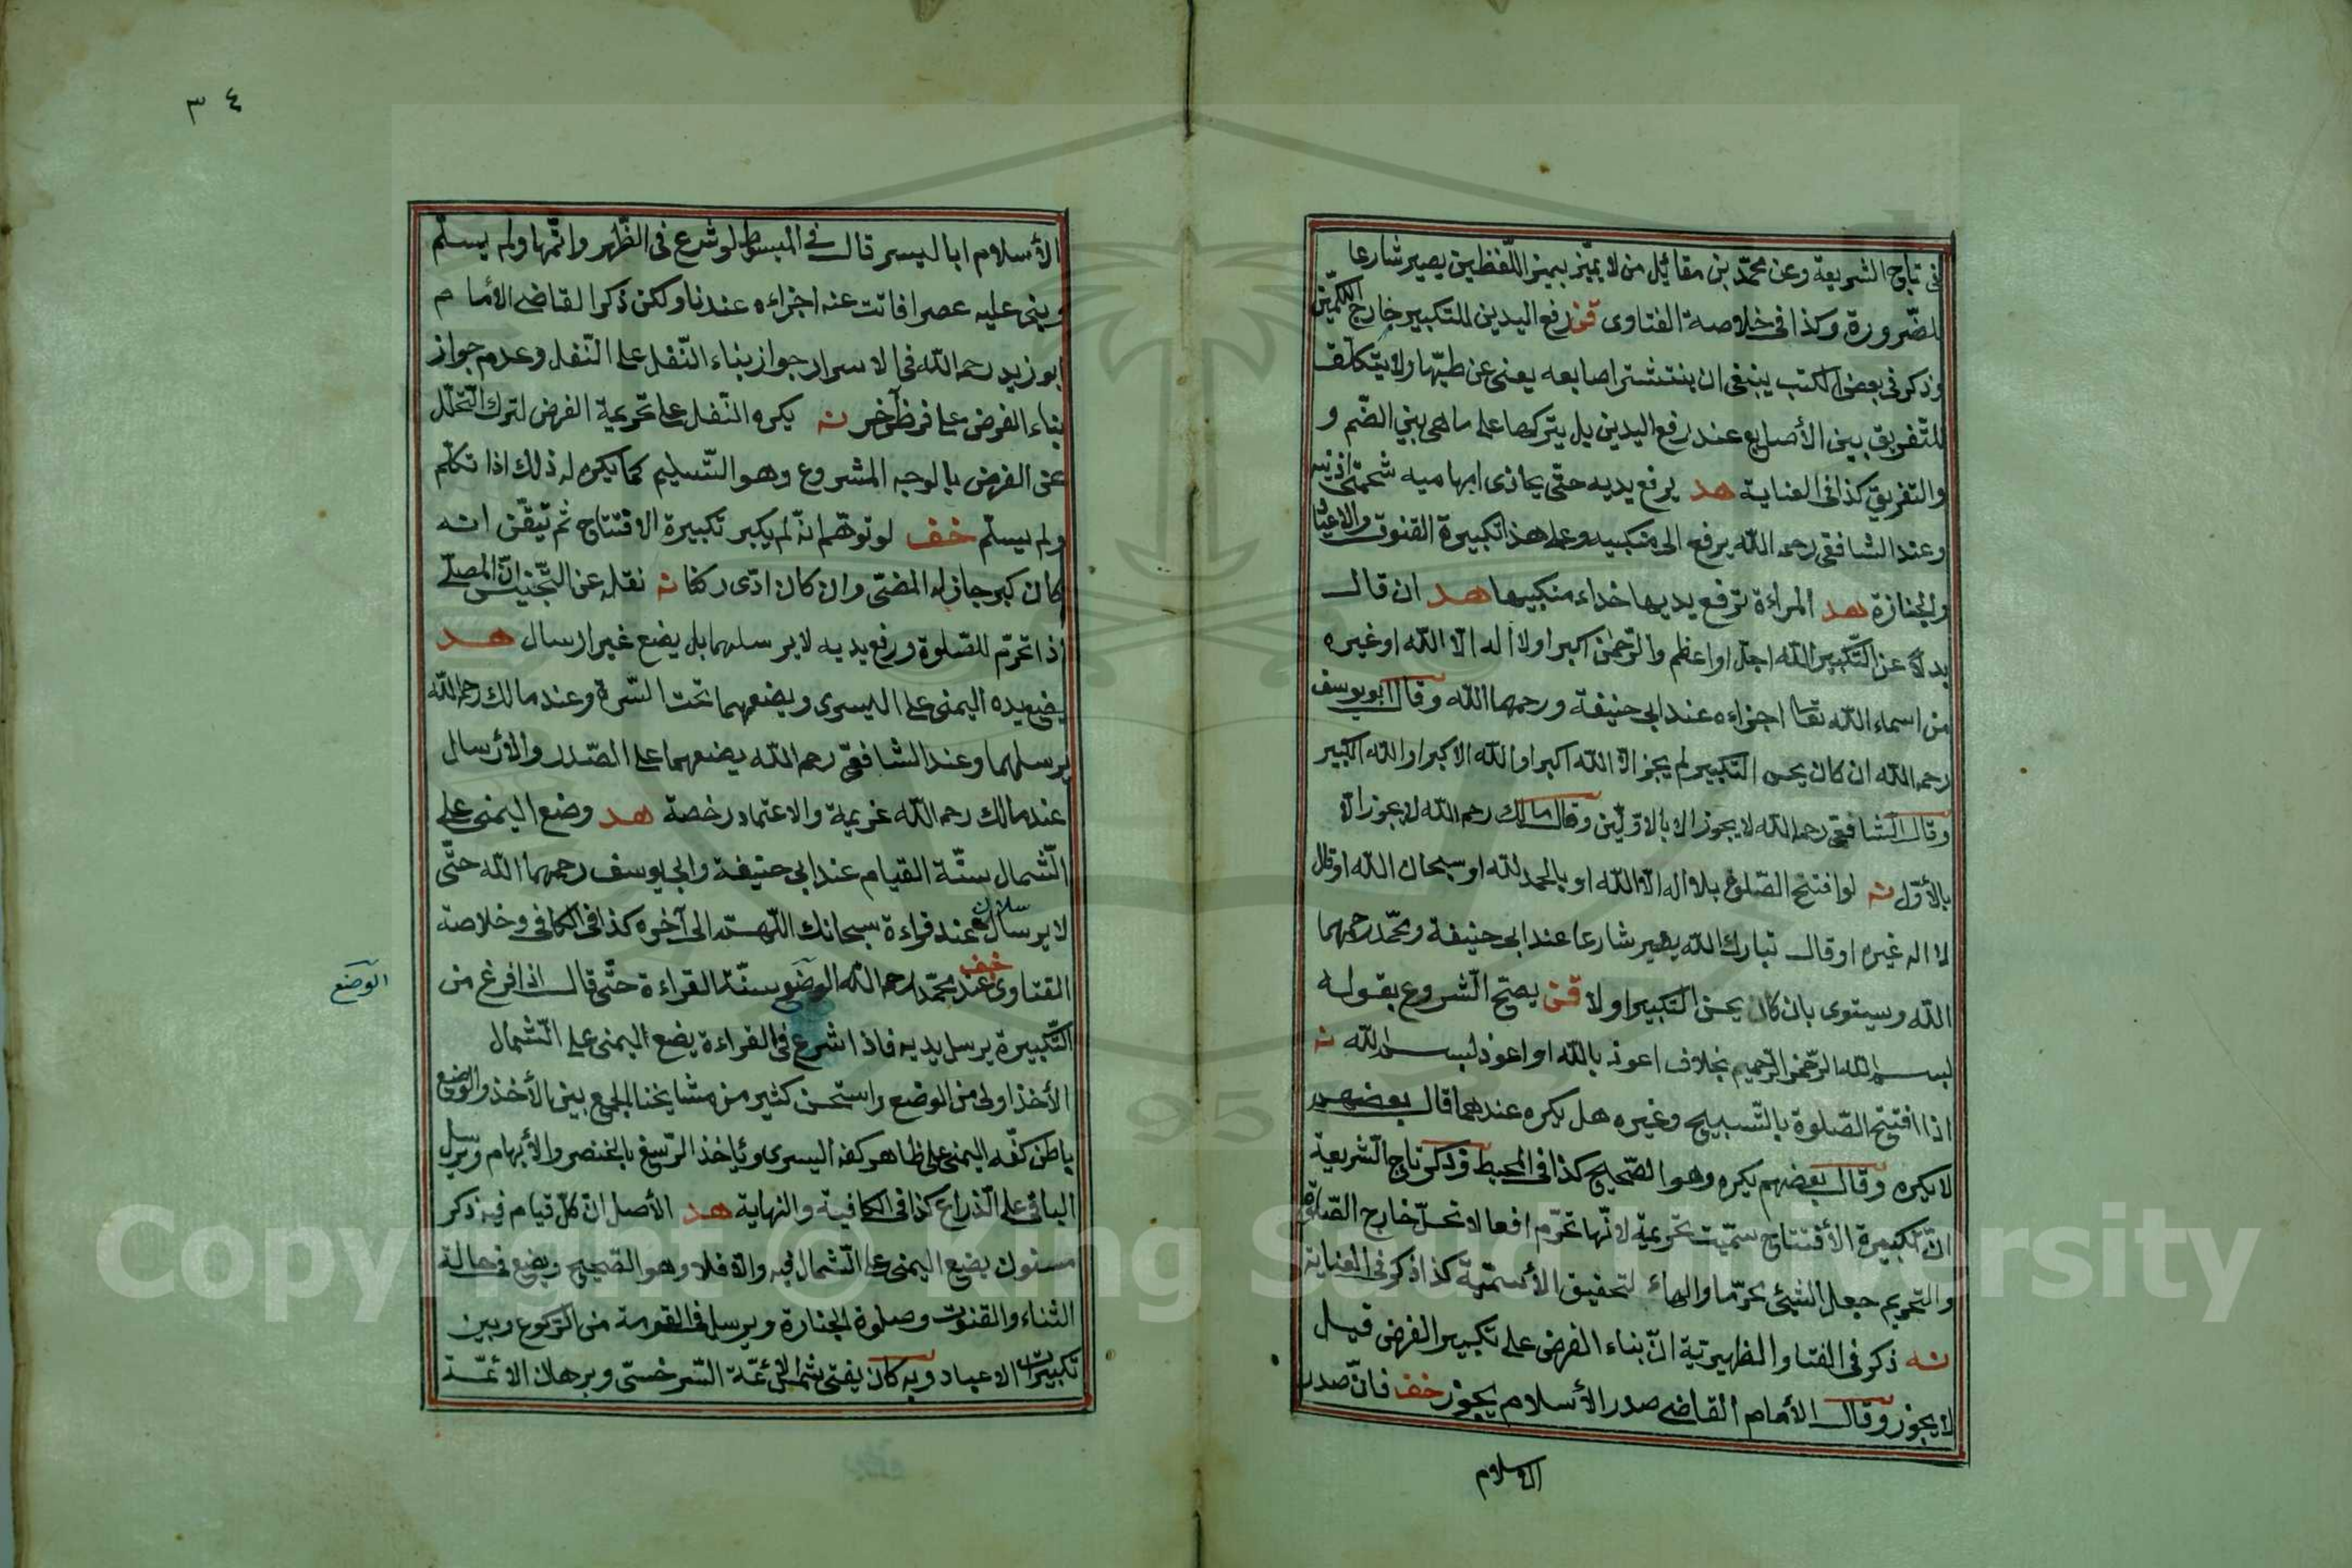 فى تاج الشريعة وعن محمّد بن مقاتل من لا يميّز بيميز اللّفظين يصير شارعا
للضّرورة وكذا فى خلاصة الفتاوى قن رفع اليدين للتكبير خارج الكمّين
وذكر فى بعض الكتب ينبغى ان ينتشتر اصابعه يعنى عن طيّها ولا يتكلّف
للتّفريق بين الأصابع عند رفع اليدين بل يتركها على ما هى بني الضّم و
والتفريق كذا فى العناية هد يرفع يديه حتّى يحاذى ابهاميه شحمتى اذنيه
وعند الشافعى رحمه اللّه يرفع الى منكبيه وعلى هذا تكبيرة القنوت والاعياد
والجنازة هد المراءة ترفع يديها حذاء منكبيها هد ان قال
بدلا عن التّكبير اللّه اجلّ او اعظم والرّحمن اكبر او لا اله الّا اللّه او غيره
من اسماء اللّه تعا اجزاءه عند ابى حنيفة ورحمهما اللّه وقال ابو يوسف
رحمه اللّه ان كان يحسن التكبير لم يجز الّا اللّه اكبر او اللّه الاكبر او اللّه الكبير
وقال الشافعى رحمه اللّه لا يجوز الا بالاوّلين وقال مالك رحم اللّه لا يجوز الّا
بالأوّل نه لو افتتح الصّلوة بلا اله الّا اللّه او بالحمد للّه او سبحان اللّه او قال
لا اله غيره او قال تبارك اللّه يصير شارعا عند ابى حنيفة ومحمّد رحمهما
اللّه وسيتوى بان كان يحسن التكبير او لا قن يصح الشّروع بقوله
بسم اللّه الرّحمن الرّحيم بخلاف اعوذ باللّه او اعوذ لبسم اللّه نه
اذا افتتح الصّلوة بالتّسبيح وغيره هل يكره عندهما قال بعضهم
لا يكره وقال بعضهم يكره وهو الصّحيح كذا فى المحيط وذكر تاج الشّريعة
انّ تكبيرة الأفتتاح سمّيت تحريمة لانّها تحرّم افعالا تحلّ خارج الصّلوة
والتّحريم جعل الشيئ محرّما والهاء لتحقيق الأسمّية كذا ذكر فى العناية
نه ذكر فى الفتاو الظهيريّة انّ بناء الفرض على تكبير الفرض قيل
لا يجوز وقال الأمام القاضى صدر الأسلام يجوز خف فانّ صدر
الاسلام
٣٤
الأسلام ابا اليسر قال فى المبسوط لو شرع فى الظّهر واتمّها ولم يسلّم
وبنى عليه عصرا فاتت عنه اجزاءه عندنا ولكن ذكر القاضى الأمام
ابو زيد رحمه اللّه فى الاسرار جواز بناء النّفل على النّفل وعدم جواز
بناء الفرض على فرض آخر نه يكره النّفل على تحريمة الفرض لترك التّحلّل
عن الفرض بالوجه المشروع وهو التّسليم كما يكره له ذلك اذا تكلّم
ولم يسلّم خف لو توهّم انّه لم يكبر تكبيرة الافتتاح ثم تيقّن انه
كان كبر جاز له المضىّ وان كان ادّى ركنا نه نقله عن التّجنيس انّ المصلّى
اذا تحرّم للصّلوة ورفع يديه لا يرسلهما بل يضع غير ارسال هد
يضع يده اليمنى على اليسرى ويضعهما تحت السّرة وعند مالك رحمه اللّه
يرسلهما وعند الشافعىّ رحم اللّه يضعهما على الصّدر والأرسال
عند مالك رحمه اللّه عزيمة والاعتماد رخصة هد وضع اليمنى على
الشّمال سنّة القيام عند ابى حنيفة وابى يوسف رحمهما اللّه حتّى
لا يرسال عند قراءة سبحانك اللّهم الى آخره كذا فى الكافى وخلاصة
الفتاوى خف عند محمّد رحمه اللّه الوضع سنّة القراءة حتّى قال اذا فرغ من
الوضع
التّكبيرة يرسل يديه فاذا شرع فى القراءة يضع اليمنى على الشّمال
الأخذ اولى من الوضع واستحسن كثير من مشايخنا الجمع بين الأخذ والوضع
باطن كفّه اليمنى على ظاهر كفه اليسرى ويأخذ الرّسغ بالخنصر والأبهام ويرسل
الباقى على الذّراع كذا فى الكافية والنهاية هد الأصل ان كلّ قيام فيه ذكر
مسنون يضع اليمنى على الشّمال فيه والّا فلا وهو الصّحيح ويضع فى حالة
الثناء والقنوت وصلوة الجنازة ويرسل فى القومة من الرّكوع وبين
تكبيرات الاعياد وبه كان يفتى شمس الأئمّة السّرخسىّ وبرهان الائمّة
Copyright © King Saud University